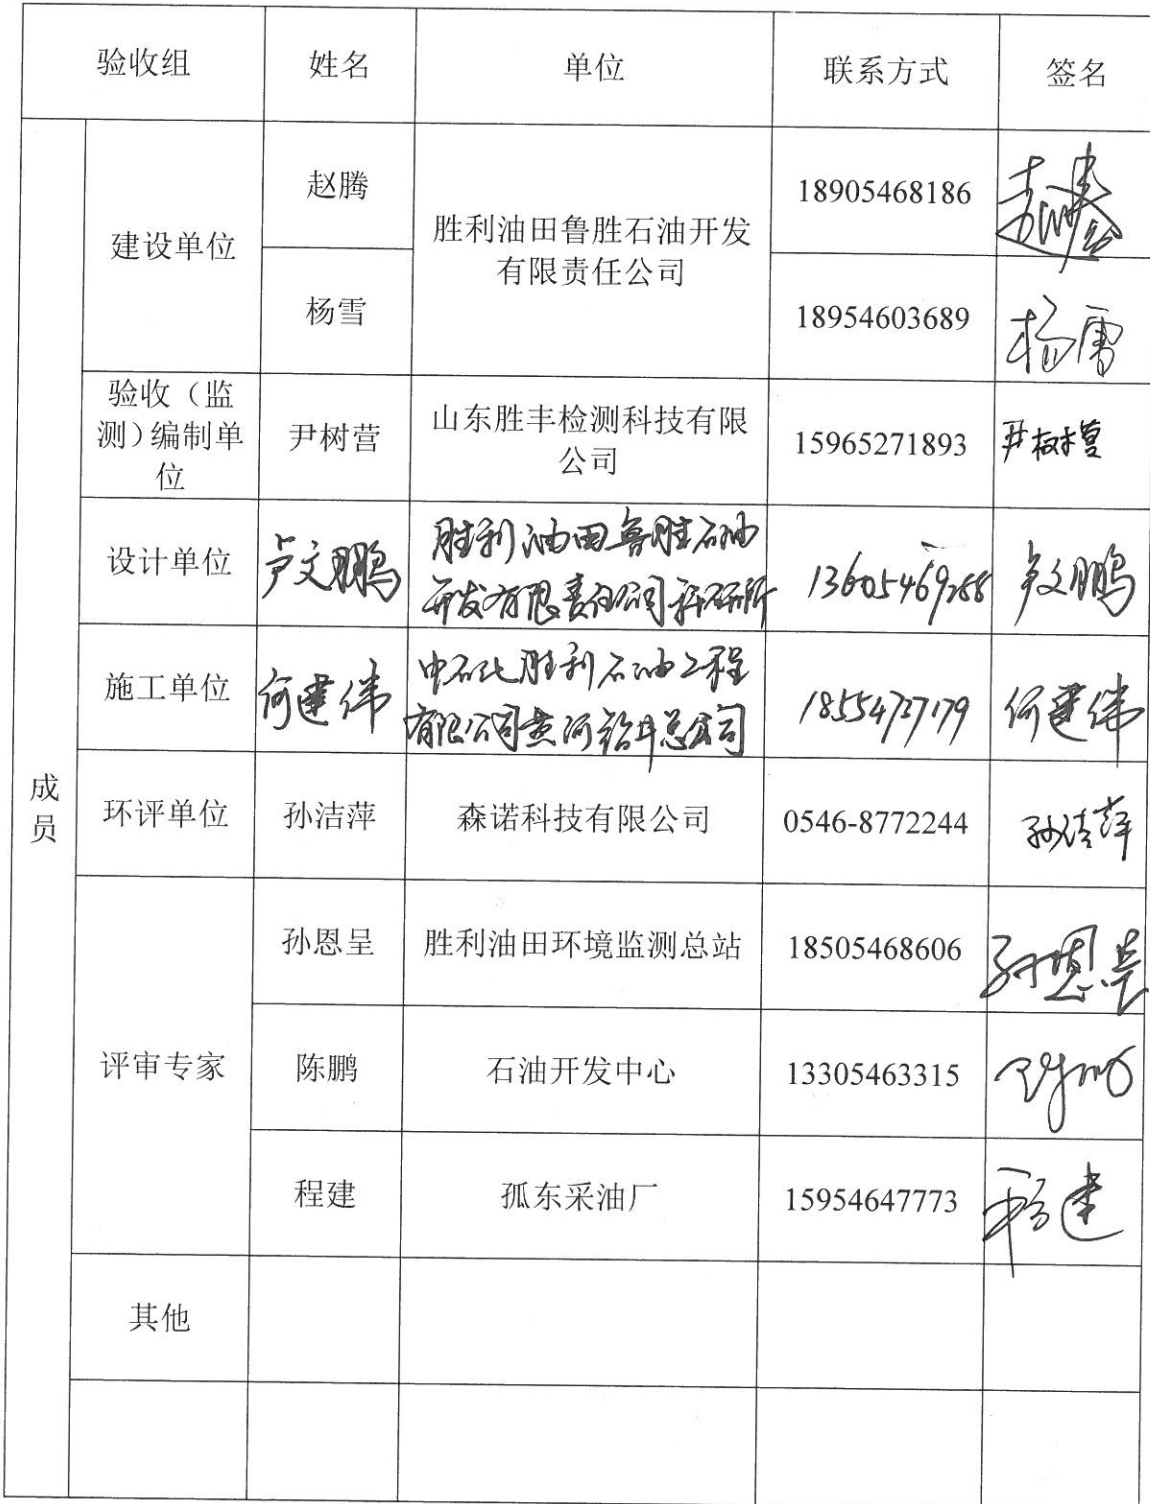 验收组 姓名 单位 联系方式 签名
成员
建设单位
赵腾
胜利油田鲁胜石油开发
有限责任公司
18905468186
赵腾
杨雪
18954603689
杨雪
验收（监
测）编制单
位
尹树营
山东胜丰检测科技有限
公司
15965271893
尹树营
设计单位
卢文鹏
胜利油田鲁胜石油
开发有限责任公司科研所
卢文鹏
施工单位
何建伟
中石化胜利石油工程
有限公司黄河钻井总公司
何建伟
环评单位
孙洁萍
森诺科技有限公司
0546-8772244
孙洁萍
评审专家
孙恩呈
胜利油田环境监测总站
18505468606
孙恩呈
陈鹏
石油开发中心
13305463315
程建
孤东采油厂
15954647773
程建
其他